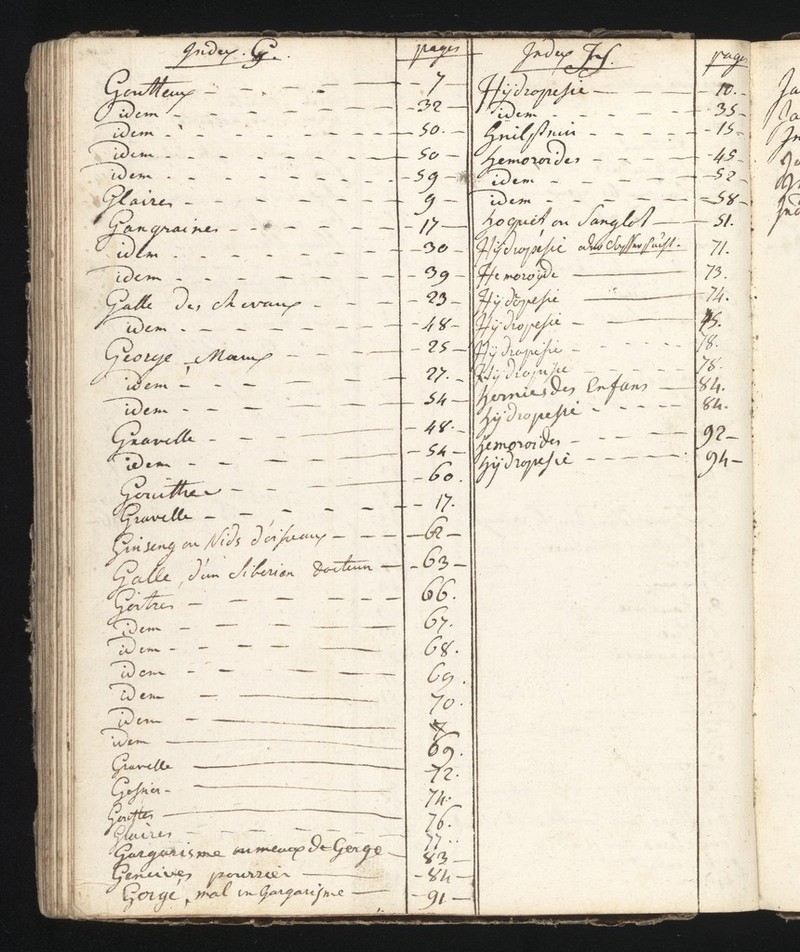 Index. G.
pages
Goutteux - - - - 7
idem - - - - 32
idem - - - - 50.
idem - - - - 50
idem - - - - 59
Glaires - - - - 9
Gangraines - - - - 17
idem - - - - 30
idem - - - - 39
Galle des chevaux - - - - 23
idem - - - - 48
George Maux - - - - 25
idem - - - - 27.
idem - - - - 54
Gravelle - - - - 48.
idem - - - - 54
- - - - 60.
Gravelle - - - - 17.
Ginseng ou Nids d'oiseaux - - - 62
Galle, d'un Siberien docteur - 63
Goitres - - - - 66.
idem - - - - 67.
idem - - - - 68.
idem - - - - 69.
idem - - - - 70.
idem - - - -
idem - - - - 69.
Gravelle - - - - 72.
- - - - 74.
Gouttes - - - - 76.
Glaires - - - - 77.
Gargarisme au meaux de Gorge - 83
Gencives pourrier - - 84
Gorge, mal un Gargarisme - 91
Index H.
pages
Hydropesie - - - - 10.
idem - - - - 35
- - - - 15
hemoroides - - - - 45
idem - - - - 52
idem - - - - 58
hoquet ou Sanglot - 51.
Hydropesie oder 71.
Hemoroyde - 73.
Hydropesie - 74.
Hydropesie - 75.
Hydropisie - 78.
Hydropisie - 78.
hernies des Enfans - 84.
hydropesie - - - - 84.
hemoroides - - - - 92
hydropesie - - - - 94